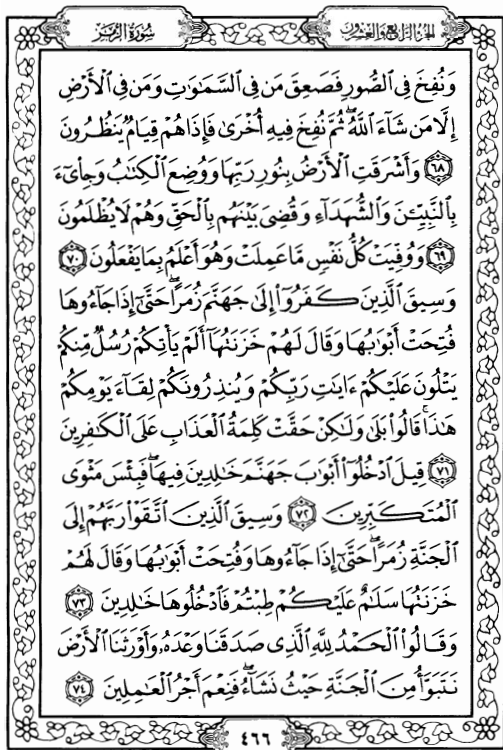 الجزء الرابع والعشرون
سورة الزمر
وَنُفِخَ فِي ٱلصُّورِ فَصَعِقَ مَن فِي ٱلسَّمَٰوَٰتِ وَمَن فِي ٱلْأَرْضِ
إِلَّا مَن شَآءَ ٱللَّهُ ۖ ثُمَّ نُفِخَ فِيهِ أُخْرَىٰ فَإِذَا هُمْ قِيَامٌ يَنظُرُونَ
﴿٦٨﴾ وَأَشْرَقَتِ ٱلْأَرْضُ بِنُورِ رَبِّهَا وَوُضِعَ ٱلْكِتَٰبُ وَجِا۟ىٓءَ
بِٱلنَّبِيِّـۧنَ وَٱلشُّهَدَآءِ وَقُضِيَ بَيْنَهُم بِٱلْحَقِّ وَهُمْ لَا يُظْلَمُونَ
﴿٦٩﴾ وَوُفِّيَتْ كُلُّ نَفْسٍ مَّا عَمِلَتْ وَهُوَ أَعْلَمُ بِمَا يَفْعَلُونَ ﴿٧٠﴾
وَسِيقَ ٱلَّذِينَ كَفَرُوٓا۟ إِلَىٰ جَهَنَّمَ زُمَرًا ۖ حَتَّىٰٓ إِذَا جَآءُوهَا
فُتِحَتْ أَبْوَٰبُهَا وَقَالَ لَهُمْ خَزَنَتُهَآ أَلَمْ يَأْتِكُمْ رُسُلٌ مِّنكُمْ
يَتْلُونَ عَلَيْكُمْ ءَايَٰتِ رَبِّكُمْ وَيُنذِرُونَكُمْ لِقَآءَ يَوْمِكُمْ
هَٰذَا ۚ قَالُوا۟ بَلَىٰ وَلَٰكِنْ حَقَّتْ كَلِمَةُ ٱلْعَذَابِ عَلَى ٱلْكَٰفِرِينَ
﴿٧١﴾ قِيلَ ٱدْخُلُوٓا۟ أَبْوَٰبَ جَهَنَّمَ خَٰلِدِينَ فِيهَا ۖ فَبِئْسَ مَثْوَى
ٱلْمُتَكَبِّرِينَ ﴿٧٢﴾ وَسِيقَ ٱلَّذِينَ ٱتَّقَوْا۟ رَبَّهُمْ إِلَى
ٱلْجَنَّةِ زُمَرًا ۖ حَتَّىٰٓ إِذَا جَآءُوهَا وَفُتِحَتْ أَبْوَٰبُهَا وَقَالَ لَهُمْ
خَزَنَتُهَا سَلَٰمٌ عَلَيْكُمْ طِبْتُمْ فَٱدْخُلُوهَا خَٰلِدِينَ ﴿٧٣﴾
وَقَالُوا۟ ٱلْحَمْدُ لِلَّهِ ٱلَّذِي صَدَقَنَا وَعْدَهُۥ وَأَوْرَثَنَا ٱلْأَرْضَ
نَتَبَوَّأُ مِنَ ٱلْجَنَّةِ حَيْثُ نَشَآءُ ۖ فَنِعْمَ أَجْرُ ٱلْعَٰمِلِينَ ﴿٧٤﴾
٤٦٦